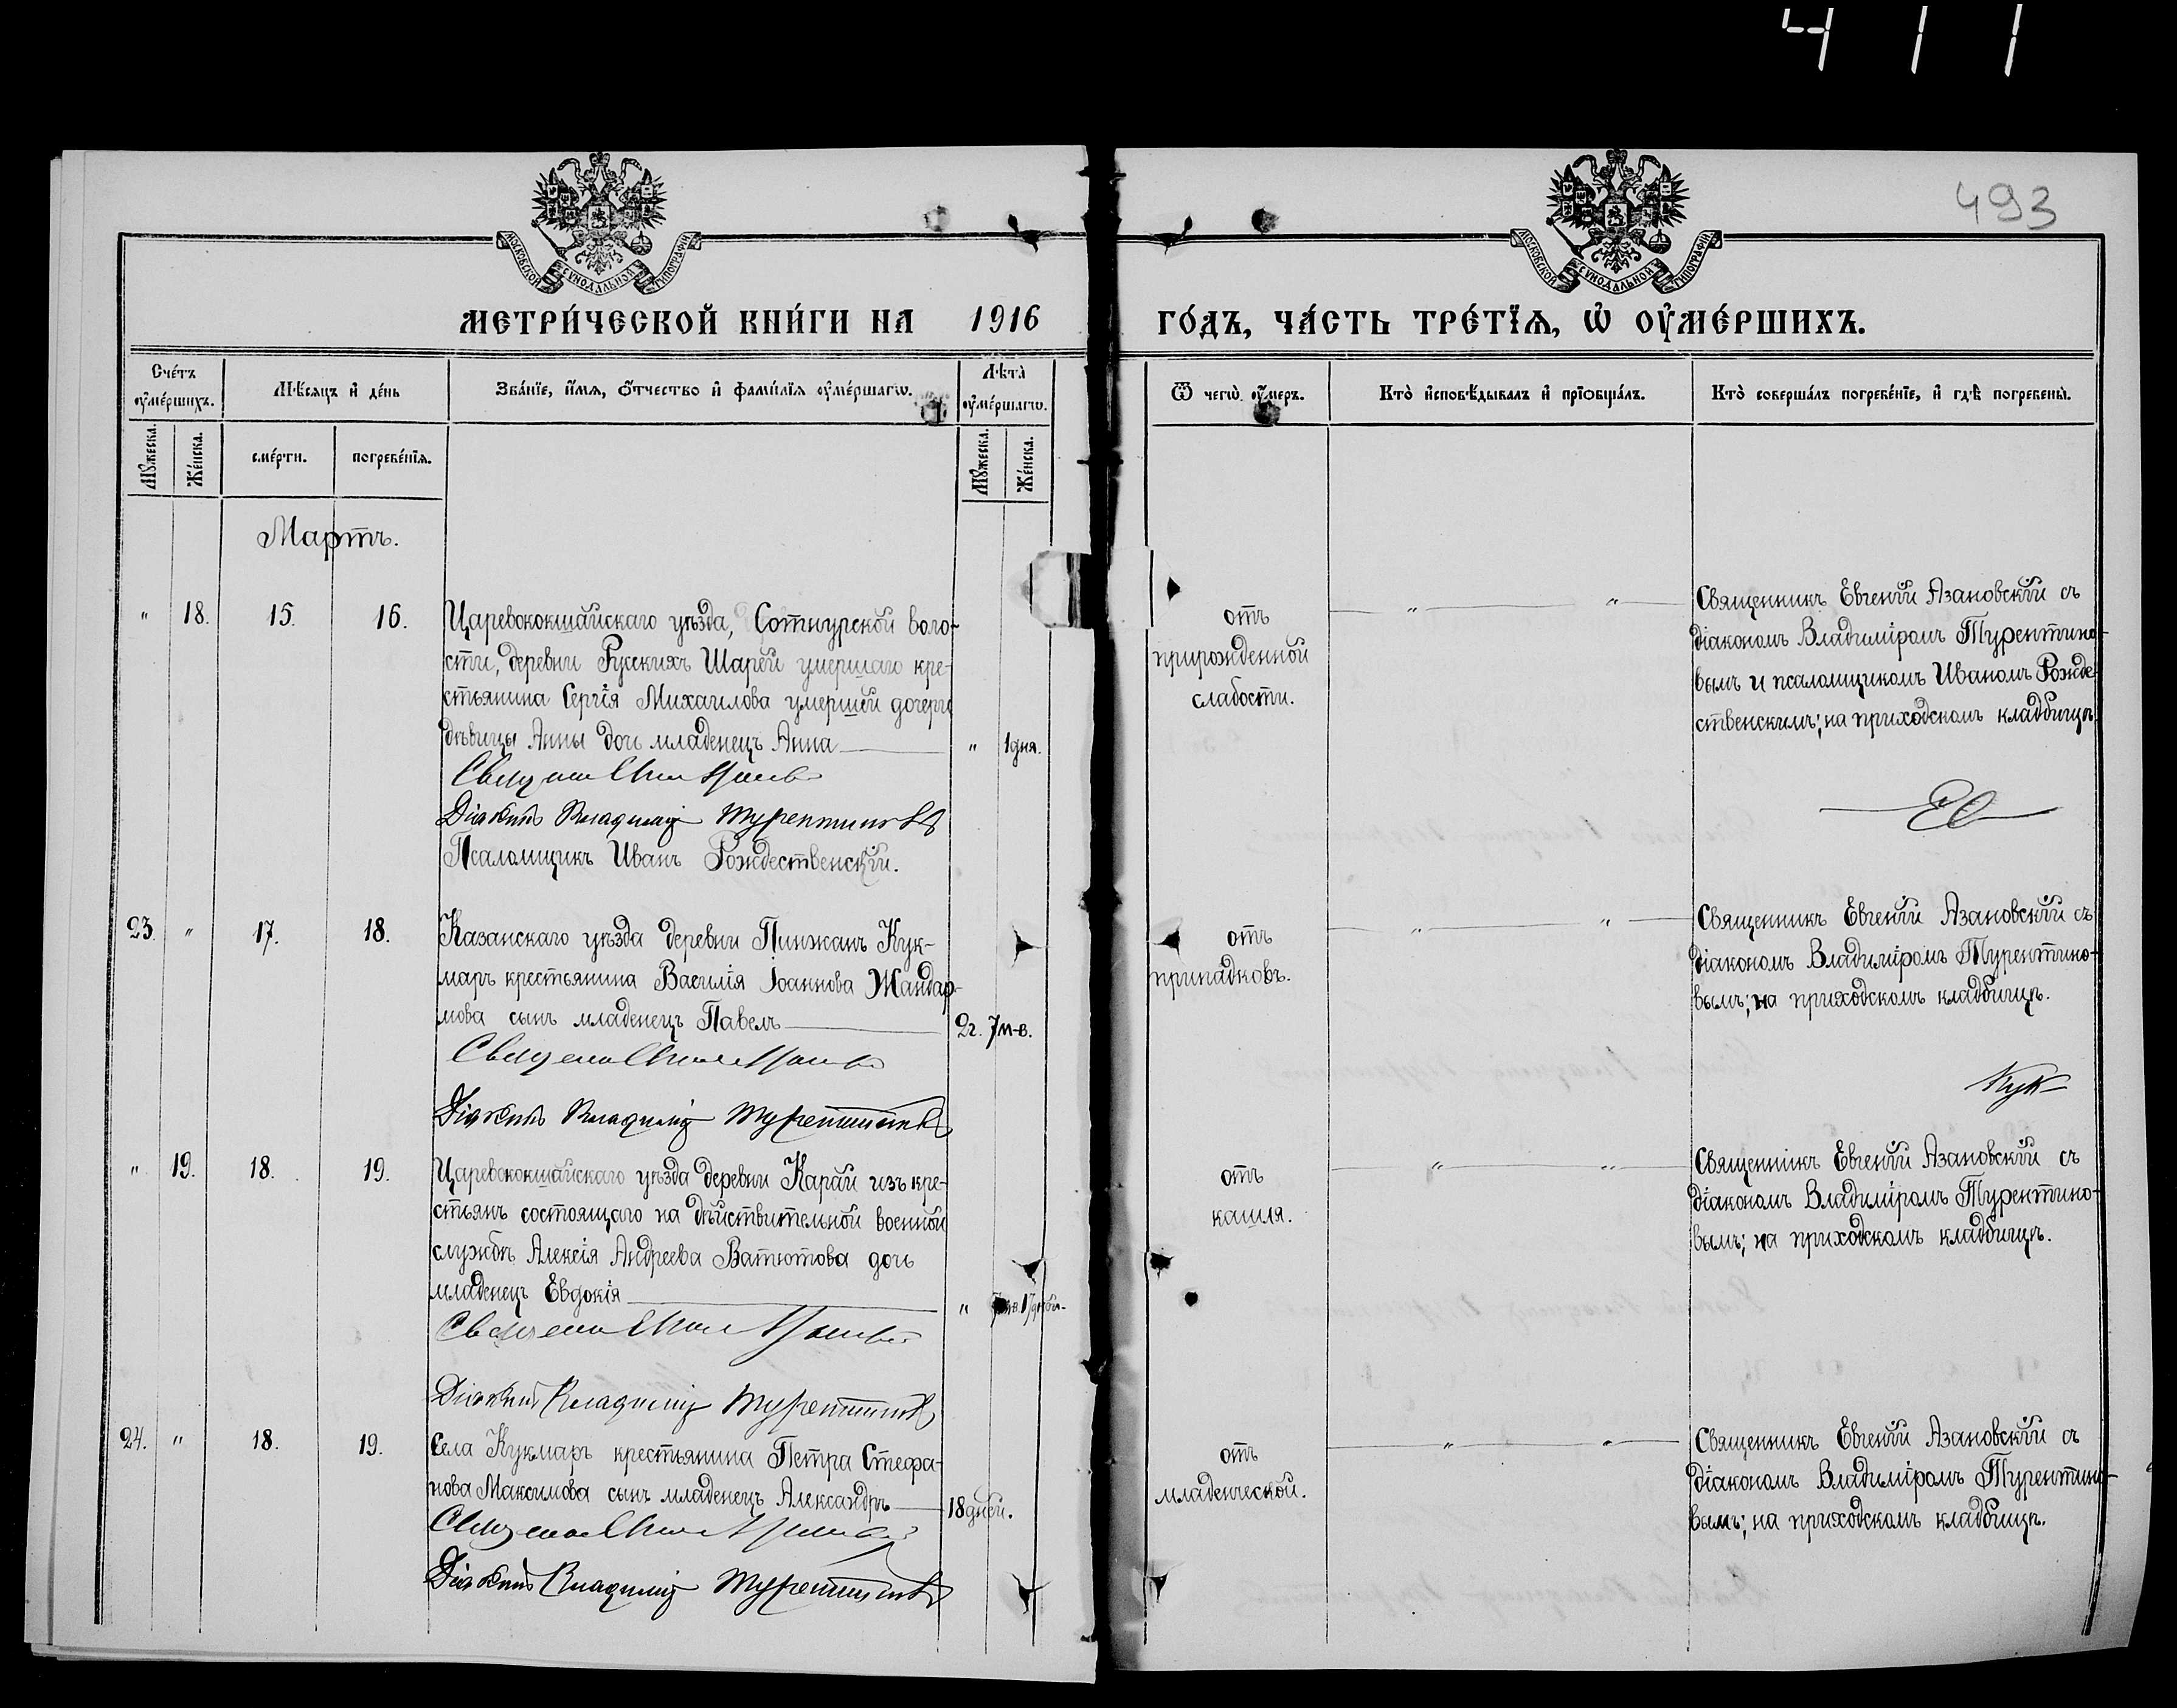 411
493
МОСКОВСКОЙ СѴНОДАЛЬНОЙ ТИПОГРАФІИ
МОСКОВСКОЙ СѴНОДАЛЬНОЙ ТИПОГРАФІИ
МЕТРИ́ЧЕСКОЙ КНИ́ГИ НА 1916 ГО́ДЪ, ЧА́СТЬ ТРЕ́ТЇѦ, Ѡ҆ ОУ҆МЕ́РШИХЪ.
Сче́тъ оу҆ме́ршихъ.
Мѣ́сяцъ и҆ де́нь
Зва́нїе, и҆́мя, ѻ҆́тчество и҆ фами́лїя оу҆ме́ршагѡ.
Лѣта̀ оу҆ме́ршагѡ.
Ѿ чегѡ̀ оу҆́меръ.
Кто̀ и҆сповѣ́дывалъ и҆ прїѡбща́лъ.
Кто̀ соверша́лъ погребе́нїе, и҆ гдѣ̀ погребены̀.
Мꙋ́жеска.
Же́нска.
сме́рти.
погребе́нїя.
Мꙋ́жеска.
Же́нска.
Мартъ.
" 18. 15. 16.
Царевококшайскаго уѣзда, Сотнурской воло-
сти, деревни Русскихъ Шарей умершаго кре-
стьянина Сергія Михаилова умершей дочери
дѣвицы Анны дочь младенецъ Анна
" 1 дня.
Діаконъ Владимір Турентинов
Псаломщикъ Иванъ Рождественскій.
отъ
прирожденной
слабости.
" "
Священникъ Евгеній Азановскій съ
діакономъ Владиміромъ Турентино-
вымъ и псаломщикомъ Иваномъ Рожде-
ственскимъ; на приходскомъ кладбищѣ.
23. " 17. 18.
Казанскаго уѣзда деревни Пинжанъ Кук-
маръ крестьянина Василія Іоаннова Жандар-
мова сынъ младенецъ Павелъ
2г. 7м-в.
Діаконъ Владимір Турентинов
отъ
припадковъ.
" "
Священникъ Евгеній Азановскій съ
діакономъ Владиміромъ Турентино-
вымъ; на приходскомъ кладбищѣ.
Кук
" 19. 18. 19.
Царевококшайскаго уѣзда деревни Карай изъ кре-
стьянъ состоящаго на дѣйствительной военной
службѣ Алексія Андреева Ватютова дочь
младенецъ Евдокія
"
Діаконъ Владимір Турентинов
отъ
кашля.
" "
Священнікъ Евгеній Азановскій съ
діакономъ Владиміромъ Турентино-
вымъ; на приходскомъ кладбищѣ.
24. " 18. 19.
Села Кукмаръ крестьянина Петра Стефа-
нова Максимова сынъ младенецъ Александръ
18 дней.
Діаконъ Владимір Турентинов
отъ
младенческой.
" "
Священникъ Евгеній Азановскій съ
діакономъ Владиміромъ Турентино-
вымъ; на приходскомъ кладбищѣ.